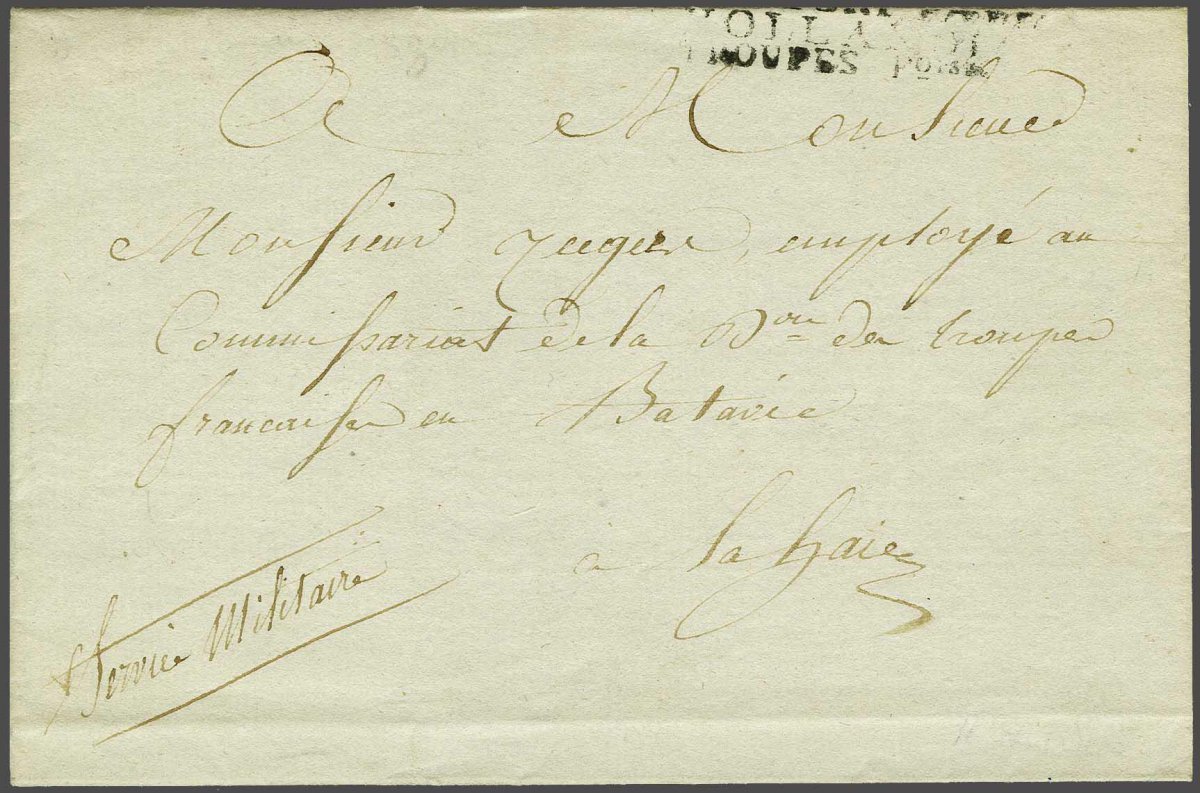 HOLLANDE
TROUPES
A Monsieur
Monsieur employé au
Commissariat de la Don des troupes
francaises en Batavie
à la haie
Service Militaire